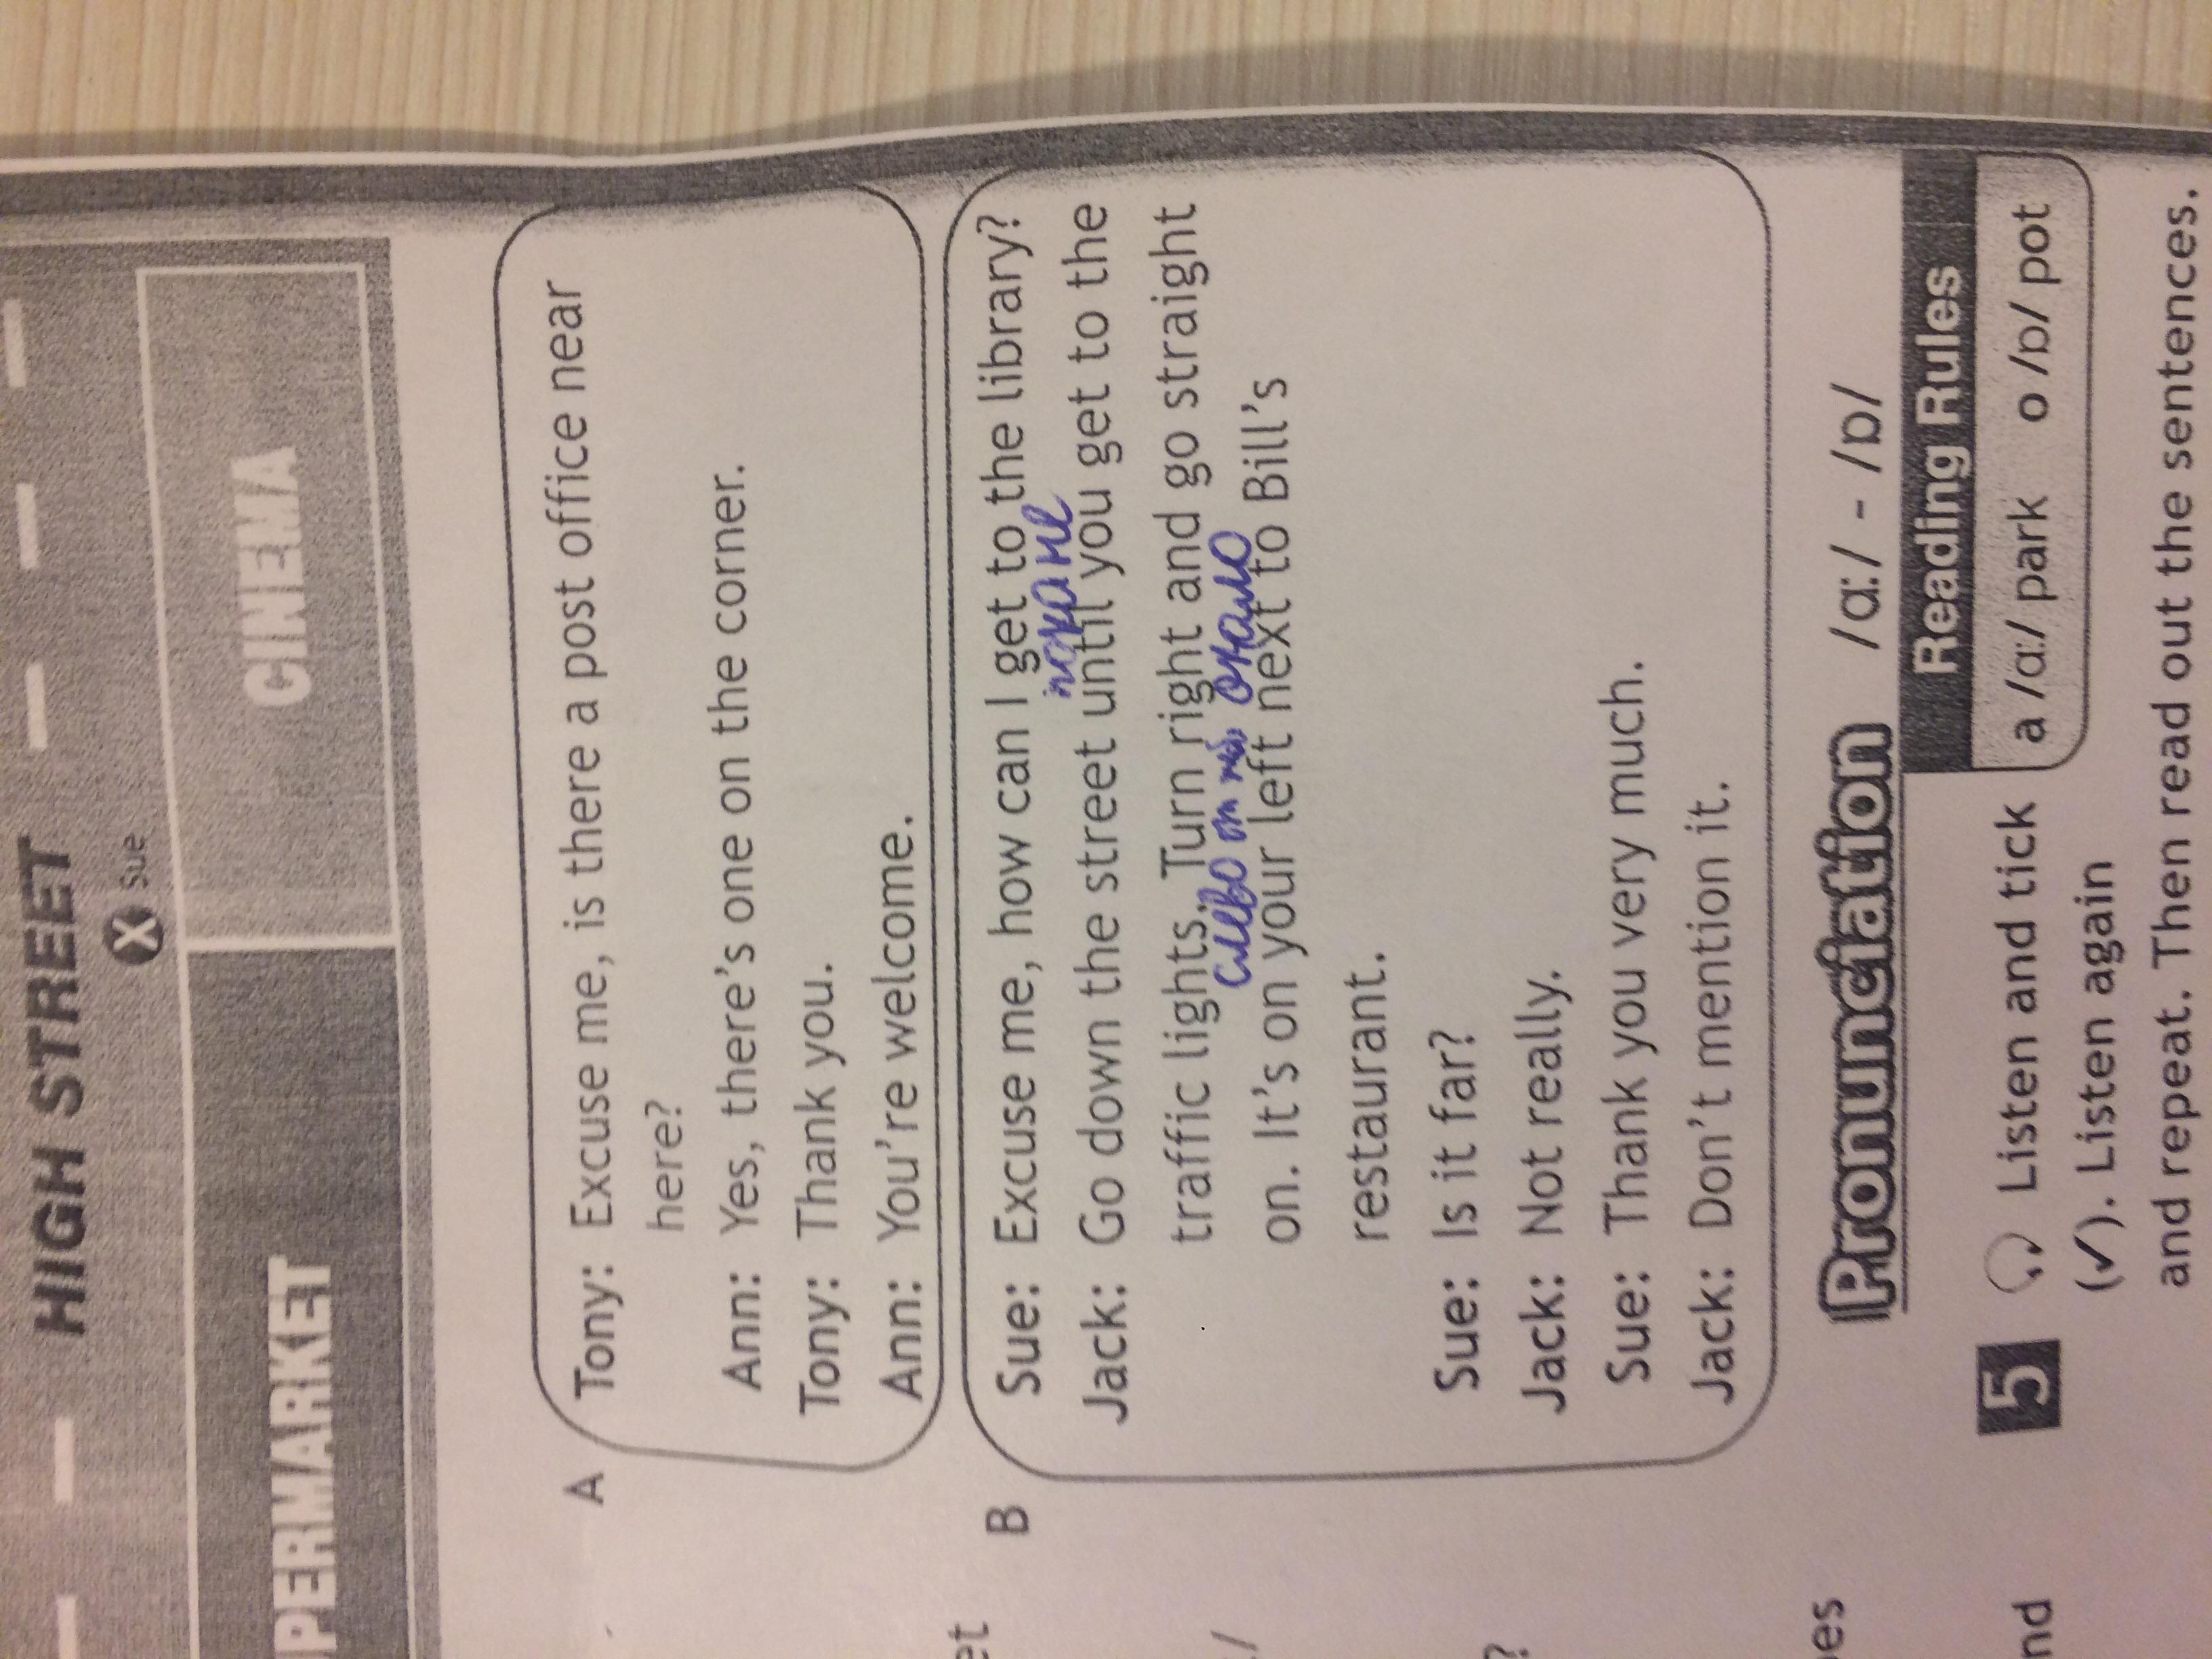 HIGH STREET
X Sue
PERMARKET
CINEMA
A
Tony: Excuse me, is there a post office near
here?
Ann: Yes, there's one on the corner.
Tony: Thank you.
Ann: You're welcome.
B
Sue: Excuse me, how can I get to the library?
пока не
Jack: Go down the street until you get to the
traffic lights. Turn right and go straight
слево от
on. It's on your left next to Bill's
restaurant.
Sue: Is it far?
Jack: Not really.
Sue: Thank you very much.
Jack: Don't mention it.
et
/
?
oes
nd
Pronunciation /ɑː/ - /ɒ/
Reading Rules
a /ɑː/ park o /ɒ/ pot
5 Listen and tick
(✓). Listen again
and repeat. Then read out the sentences.